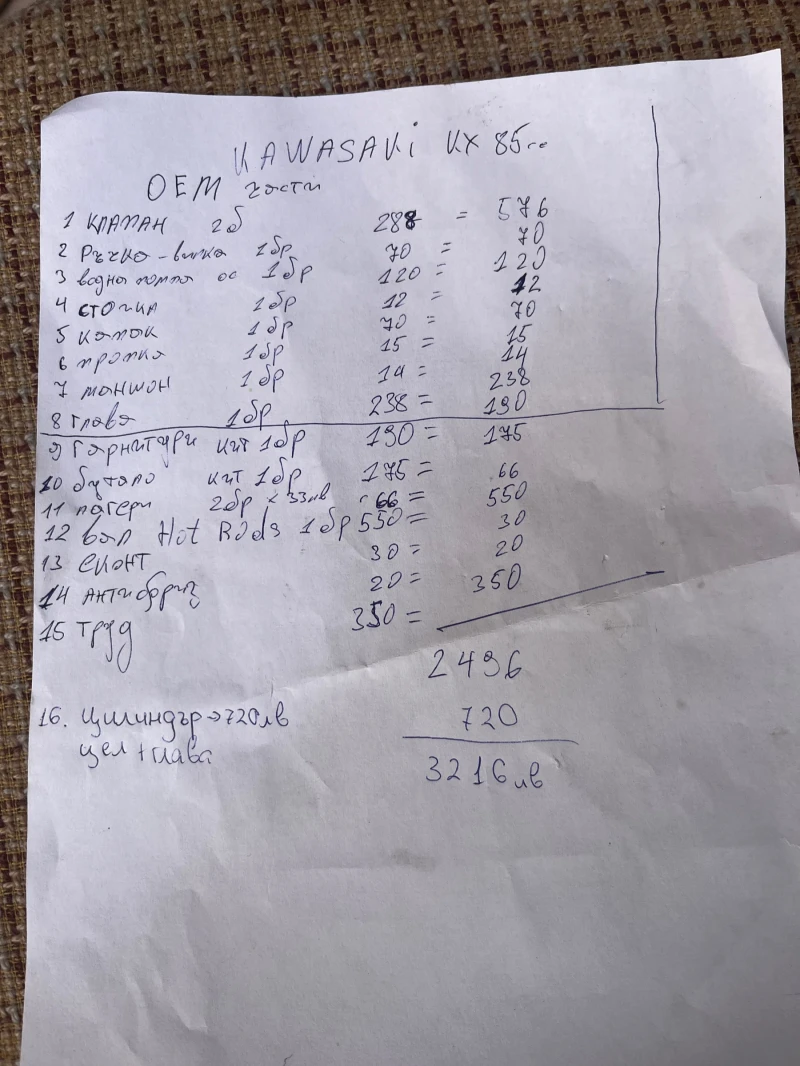 KAWASAKi KX 85cc
OEM части
1 КЛАПАН 2б 288 = 576
2 Ръчка-вилка 1бр 70 = 70
3 водна помпа ос 1бр 120 = 120
4 СТОПКА 1бр 12 = 12
5 капак 1бр 70 = 70
6 тропка 1бр 15 = 15
7 маншон 1бр 14 = 14
8 глава 1бр 238 = 238
9 Гарнитури кит 1бр 190 = 190
10 бутало кит 1бр 175 = 175
11 лагери 2бр х 33лв 66 = 66
12 вал Hot Rods 1бр 550 = 550
13 СКОНТ 30 = 30
14 АНТИФРИЗ 20 = 20
15 Труд 350 = 350
2496
16. Цилиндър → 720лв 720
цел + глава 3216лв